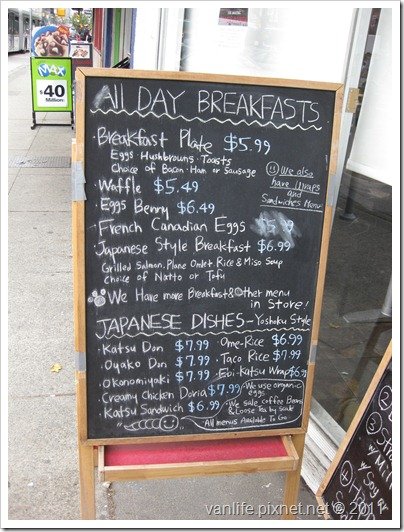 MAX
$40
Million*
All DAY BREAKFASTS
Breakfast Plate $5.99
Eggs Hushbrowns Toasts
Choice of Bacon · Ham or Sausage
We also
have Wraps
and
Sandwiches Menu
Waffle $5.49
Eggs Benny $6.49
French Canadian Eggs
Japanese Style Breakfast $6.99
Grilled Salmon, Plane Omlet Rice & Miso Soup
Choice of Natto or Tofu
We Have more Breakfast & Other menu
in Store!
JAPANESE DISHES - Yoshoku Style
Katsu Don $7.99
Ome-Rice $6.99
Oyako Don $7.99
Taco Rice $7.99
Okonomiyaki $7.99
Ebi-Katsu Wrap $6.99
Creamy Chicken Doria $7.99
We use organic
eggs
Katsu Sandwich $6.99
We sale Coffee Beans
& Loose Tea by Scale
All menus Available To Go
①
②
③
vanlife.pixnet.net © 2011